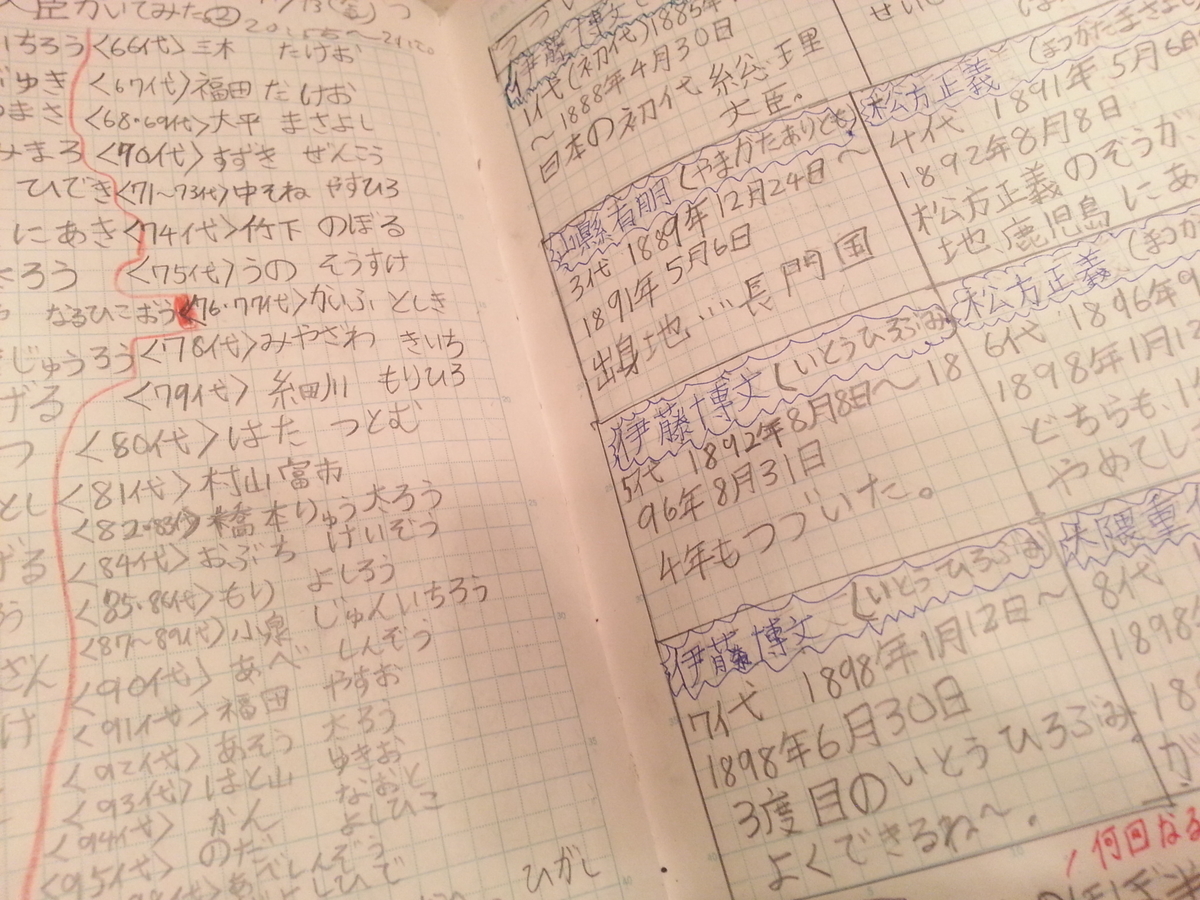 臣かいてみた②
いちろう <66代> 三木 たけお
ぶゆき <67代> 福田 たけお
まさ <68・69代> 大平 まさよし
みまろ <70代> すずき ぜんこう
ひでき <71〜73代> 中そね やすひろ
にあき <74代> 竹下 のぼる
たろう <75代> うの そうすけ
なるひこおう <76・77代> かいふ としき
じゅうろう <78代> みやざわ きいち
げる <79代> 細川 もりひろ
つ <80代> はた つとむ
とし <81代> 村山富市
<82・83代> 橋本りゅう太ろう
げる <84代> おぶち けいぞう
う <85・86代> もり よしろう
<87〜89代> 小泉 じゅんいちろう
ざん <90代> あべ しんぞう
け <91代> 福田 やすお
<92代> あそう 太ろう
<93代> はと山 ゆきお
<94代> かん なおと
<95代> のだ よしひこ
あべしんぞう
ひがし
伊藤博文
1代(初代) 1885年
〜1888年4月30日
日本の初代総理
大臣。
山縣有朋 (やまがたありとも)
3代 1889年12月24日〜
1891年5月6日
出身地…長門国
伊藤博文 (いとうひろふみ)
5代 1892年8月8日〜18
96年8月31日
4年もつづいた。
伊藤博文 (いとうひろふみ
7代 1898年1月12日〜
1898年6月30日
3度目のいとうひろふみ
よくできるね〜.
松方正義 (まつかたまさよし
4代 1891年5月6日
1892年8月8日
松方正義のぞうが
地、鹿児島にあ
松方正義 (まつか
6代 1896年9
1898年1月12
どちらも、1
やめてし
大隈重
8代
1898
18
が
何回なる